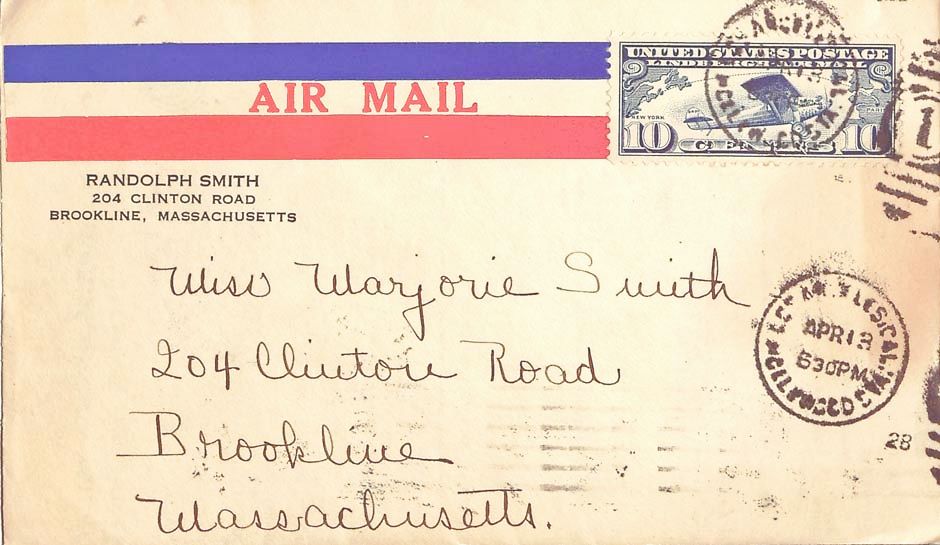 UNITED STATES POSTAGE
LINDBERGH AIR MAIL
NEW YORK
PARIS
10 CENTS 10
AIR MAIL
RANDOLPH SMITH
204 CLINTON ROAD
BROOKLINE, MASSACHUSETTS
Miss Marjorie Smith
204 Clinton Road
Brookline
Massachusetts.
APR 13
630PM
28